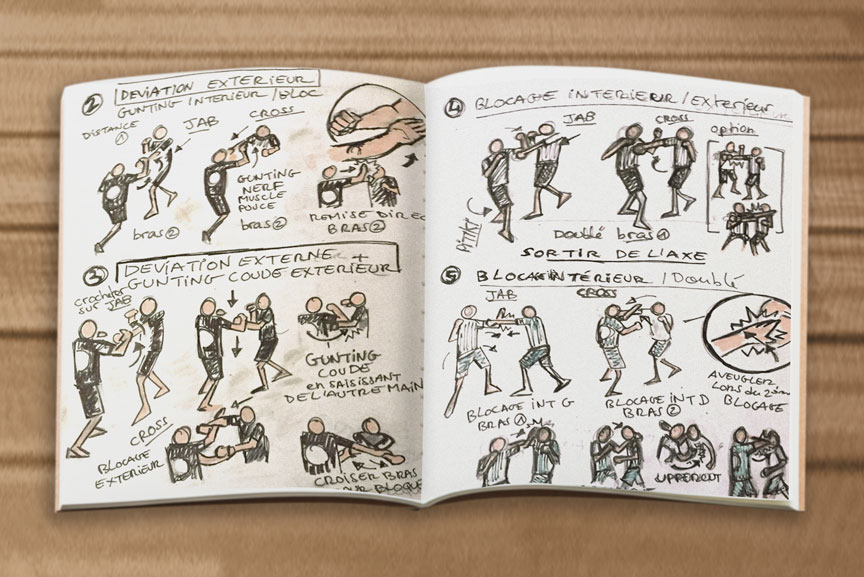 ② DEVIATION EXTERIEUR
GUNTING INTERIEUR / BLOC
DISTANCE
①
JAB
CROSS
GUNTING
NERF
MUSCLE
POUCE
bras ②
bras ②
REMISE DIREC
BRAS ②
③ DEVIATION EXTERNE +
GUNTING COUDE EXTERIEUR
crochets
sur JAB
GUNTING
COUDE
en SAISISSANT
DE L'AUTRE MAIN
CROSS
BLOCAGE
EXTERIEUR
CROISER BRAS
BLOQUE
④ BLOCAGE INTERIEUR / Exterieur
JAB
CROSS
option
Doublé bras ①
SORTIR DE L'AXE
⑤ BLOCAGE INTÉRIEUR / Doublé
JAB
CROSS
BLOCAGE INT G
BRAS ①
BLOCAGE INT D
BRAS ②
AVEUGLER
LORS du
BLOCAGE
UPPERCUT